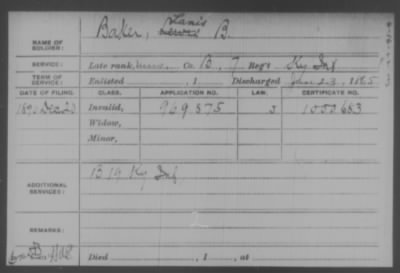 Lanis
NAME OF SOLDIER: Baker, B.
SERVICE: Late rank, Co. B, 7 Reg't Ky Inf
TERM OF SERVICE: Enlisted , 1 Discharged Jan 23, 1865
DATE OF FILING. CLASS. APPLICATION NO. LAW. CERTIFICATE NO.
1890 Dec 20 Invalid, 969375 J 1050683
Widow,
Minor,
ADDITIONAL SERVICES: B 19 Ky Inf
REMARKS:
Died , 1 , at